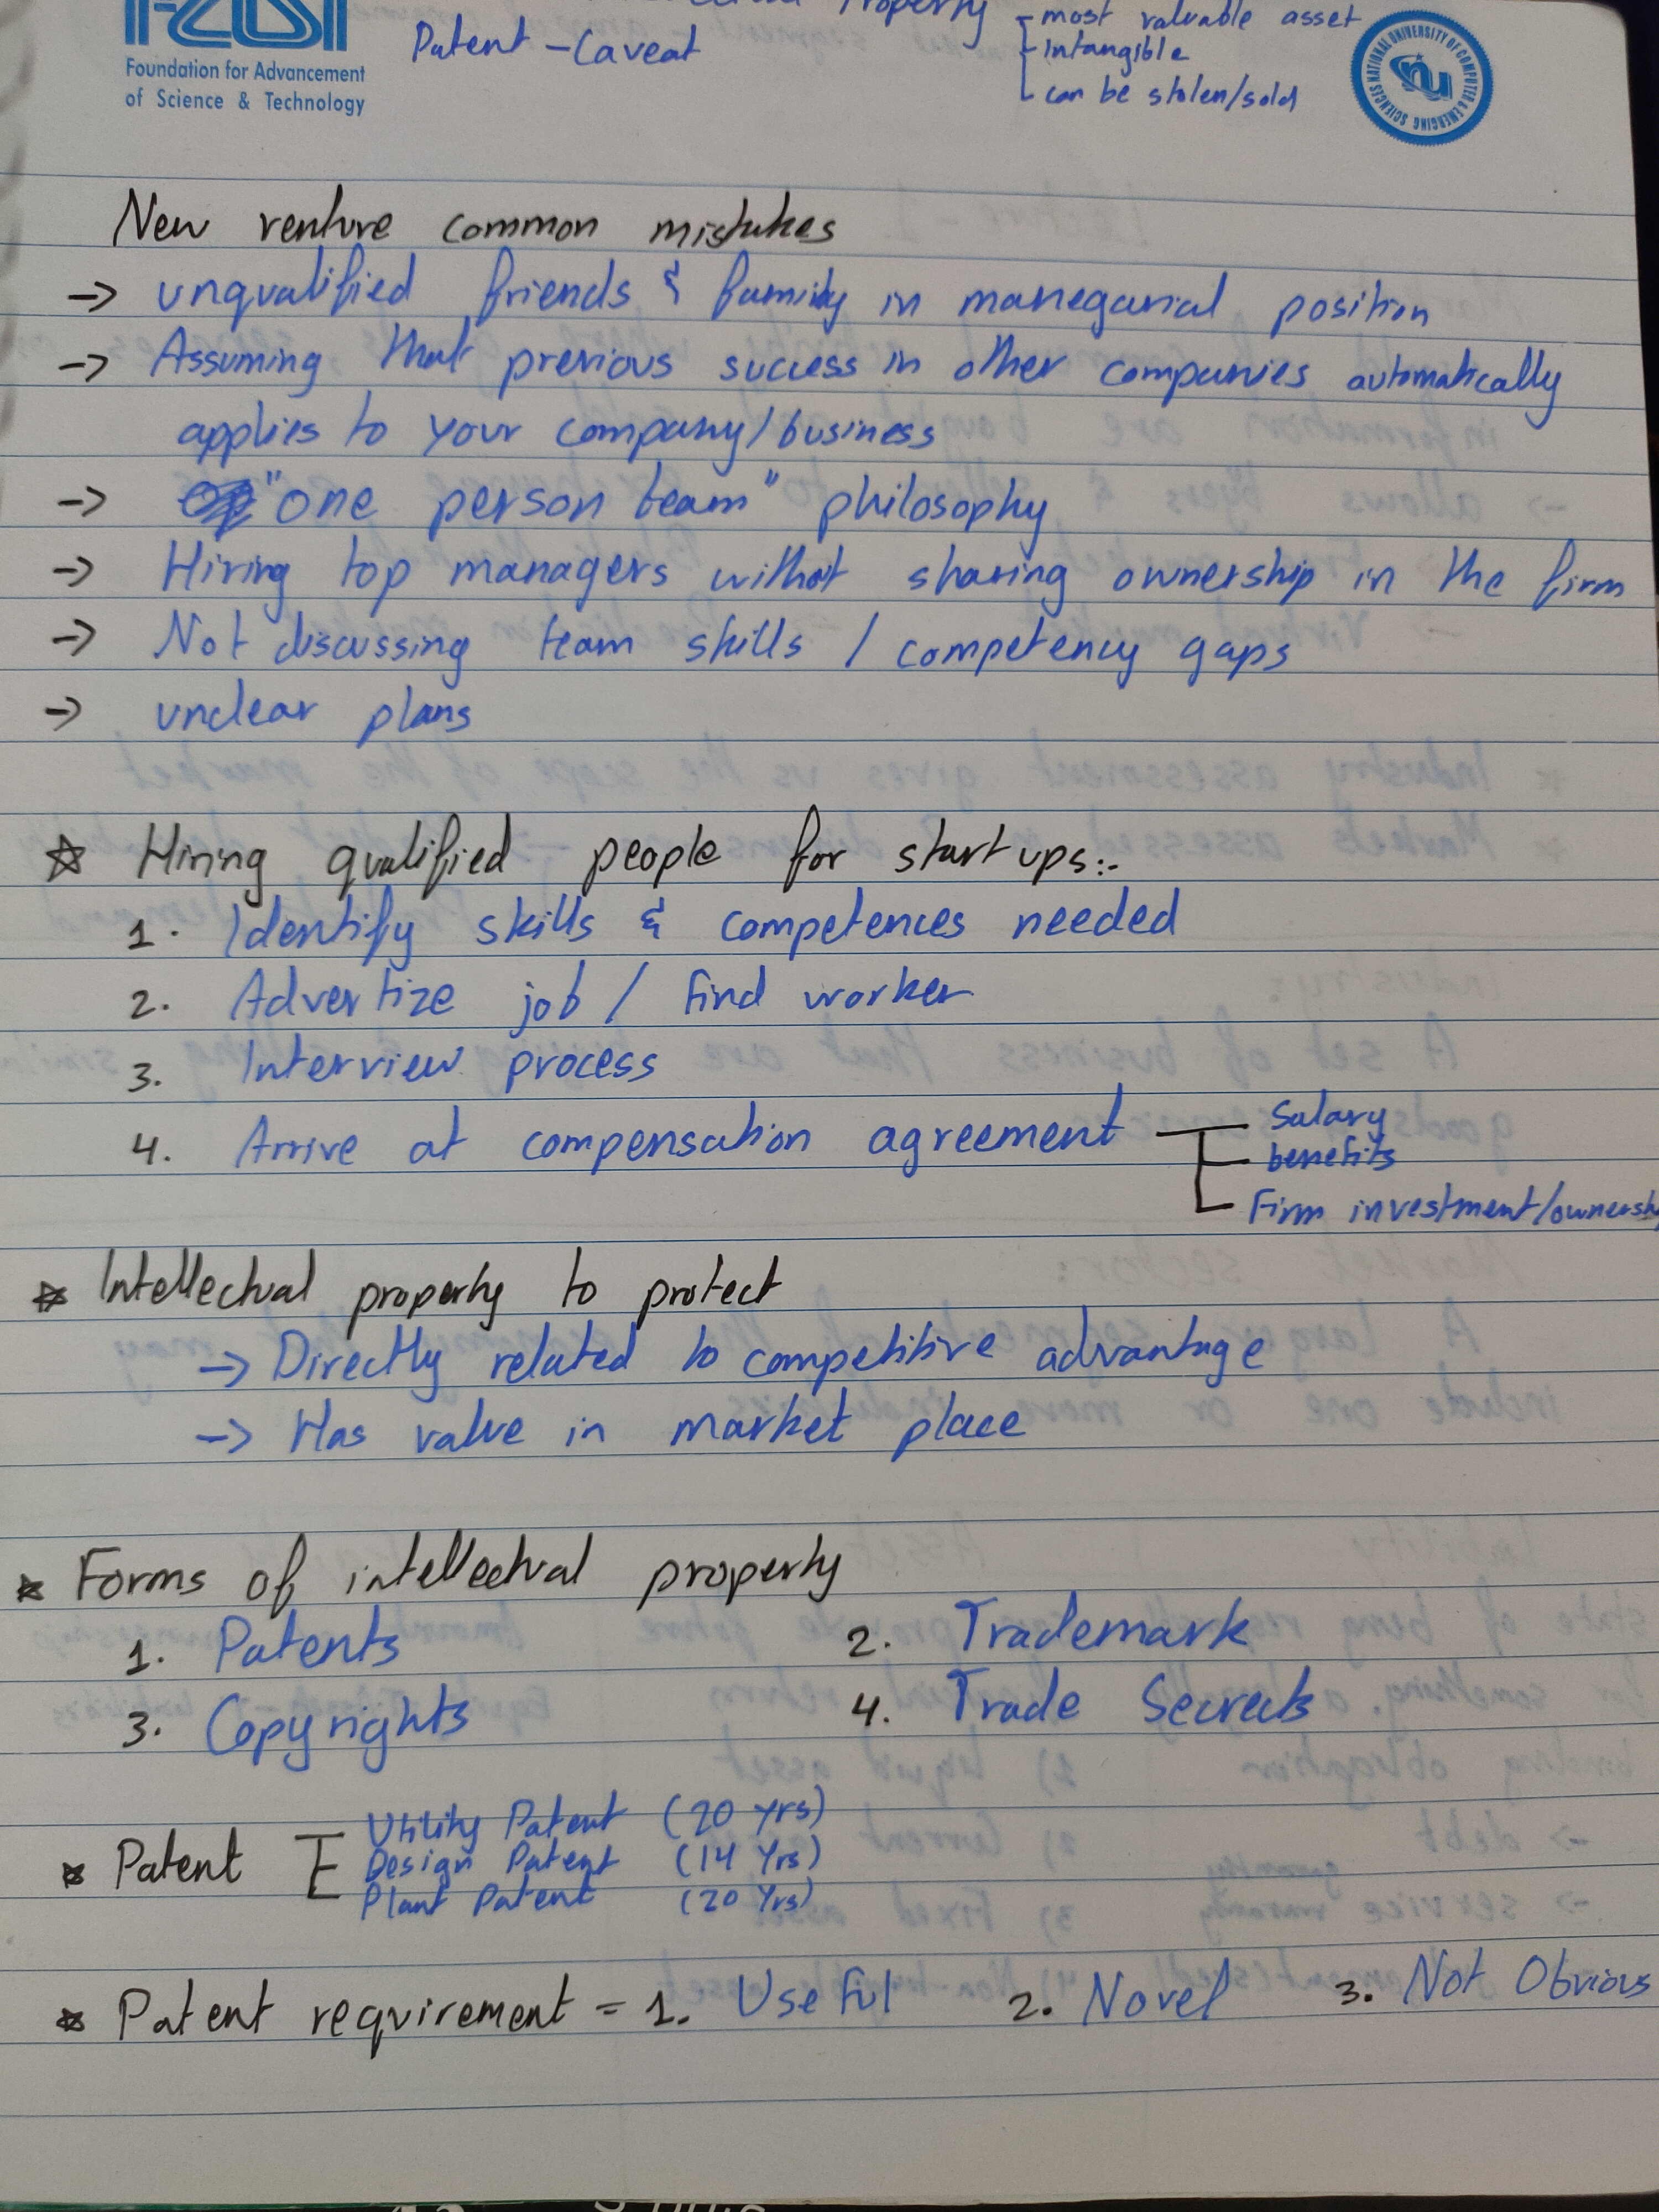 Property
most valuable asset
Patent - Caveat
intangible
can be stolen/sold
Foundation for Advancement
of Science & Technology
NATIONAL UNIVERSITY OF COMPUTER & EMERGING SCIENCES
nu
New venture common mistakes
-> unqualified friends & family in manegarial position
-> Assuming that previous success in other companies automatically
applies to your company/business
-> "one person team" philosophy
-> Hiring top managers without sharing ownership in the firm
-> Not discussing team skills / competency gaps
-> unclear plans
☆ Hiring qualified people for startups:-
1. Identify skills & competences needed
2. Advertize job / find worker
3. Interview process
4. Arrive at compensation agreement
Salary
benefits
Firm investment/ownersh
☆ Intellectual property to protect
-> Directly related to competitive advantage
-> Has value in market place
☆ Forms of intellectual property
1. Patents 2. Trademark
3. Copyrights 4. Trade Secrects
☆ Patent
Utility Patent (20 yrs)
Design Patent (14 Yrs)
Plant Patent (20 Yrs)
☆ Patent requirement = 1. Useful 2. Novel 3. Not Obvious